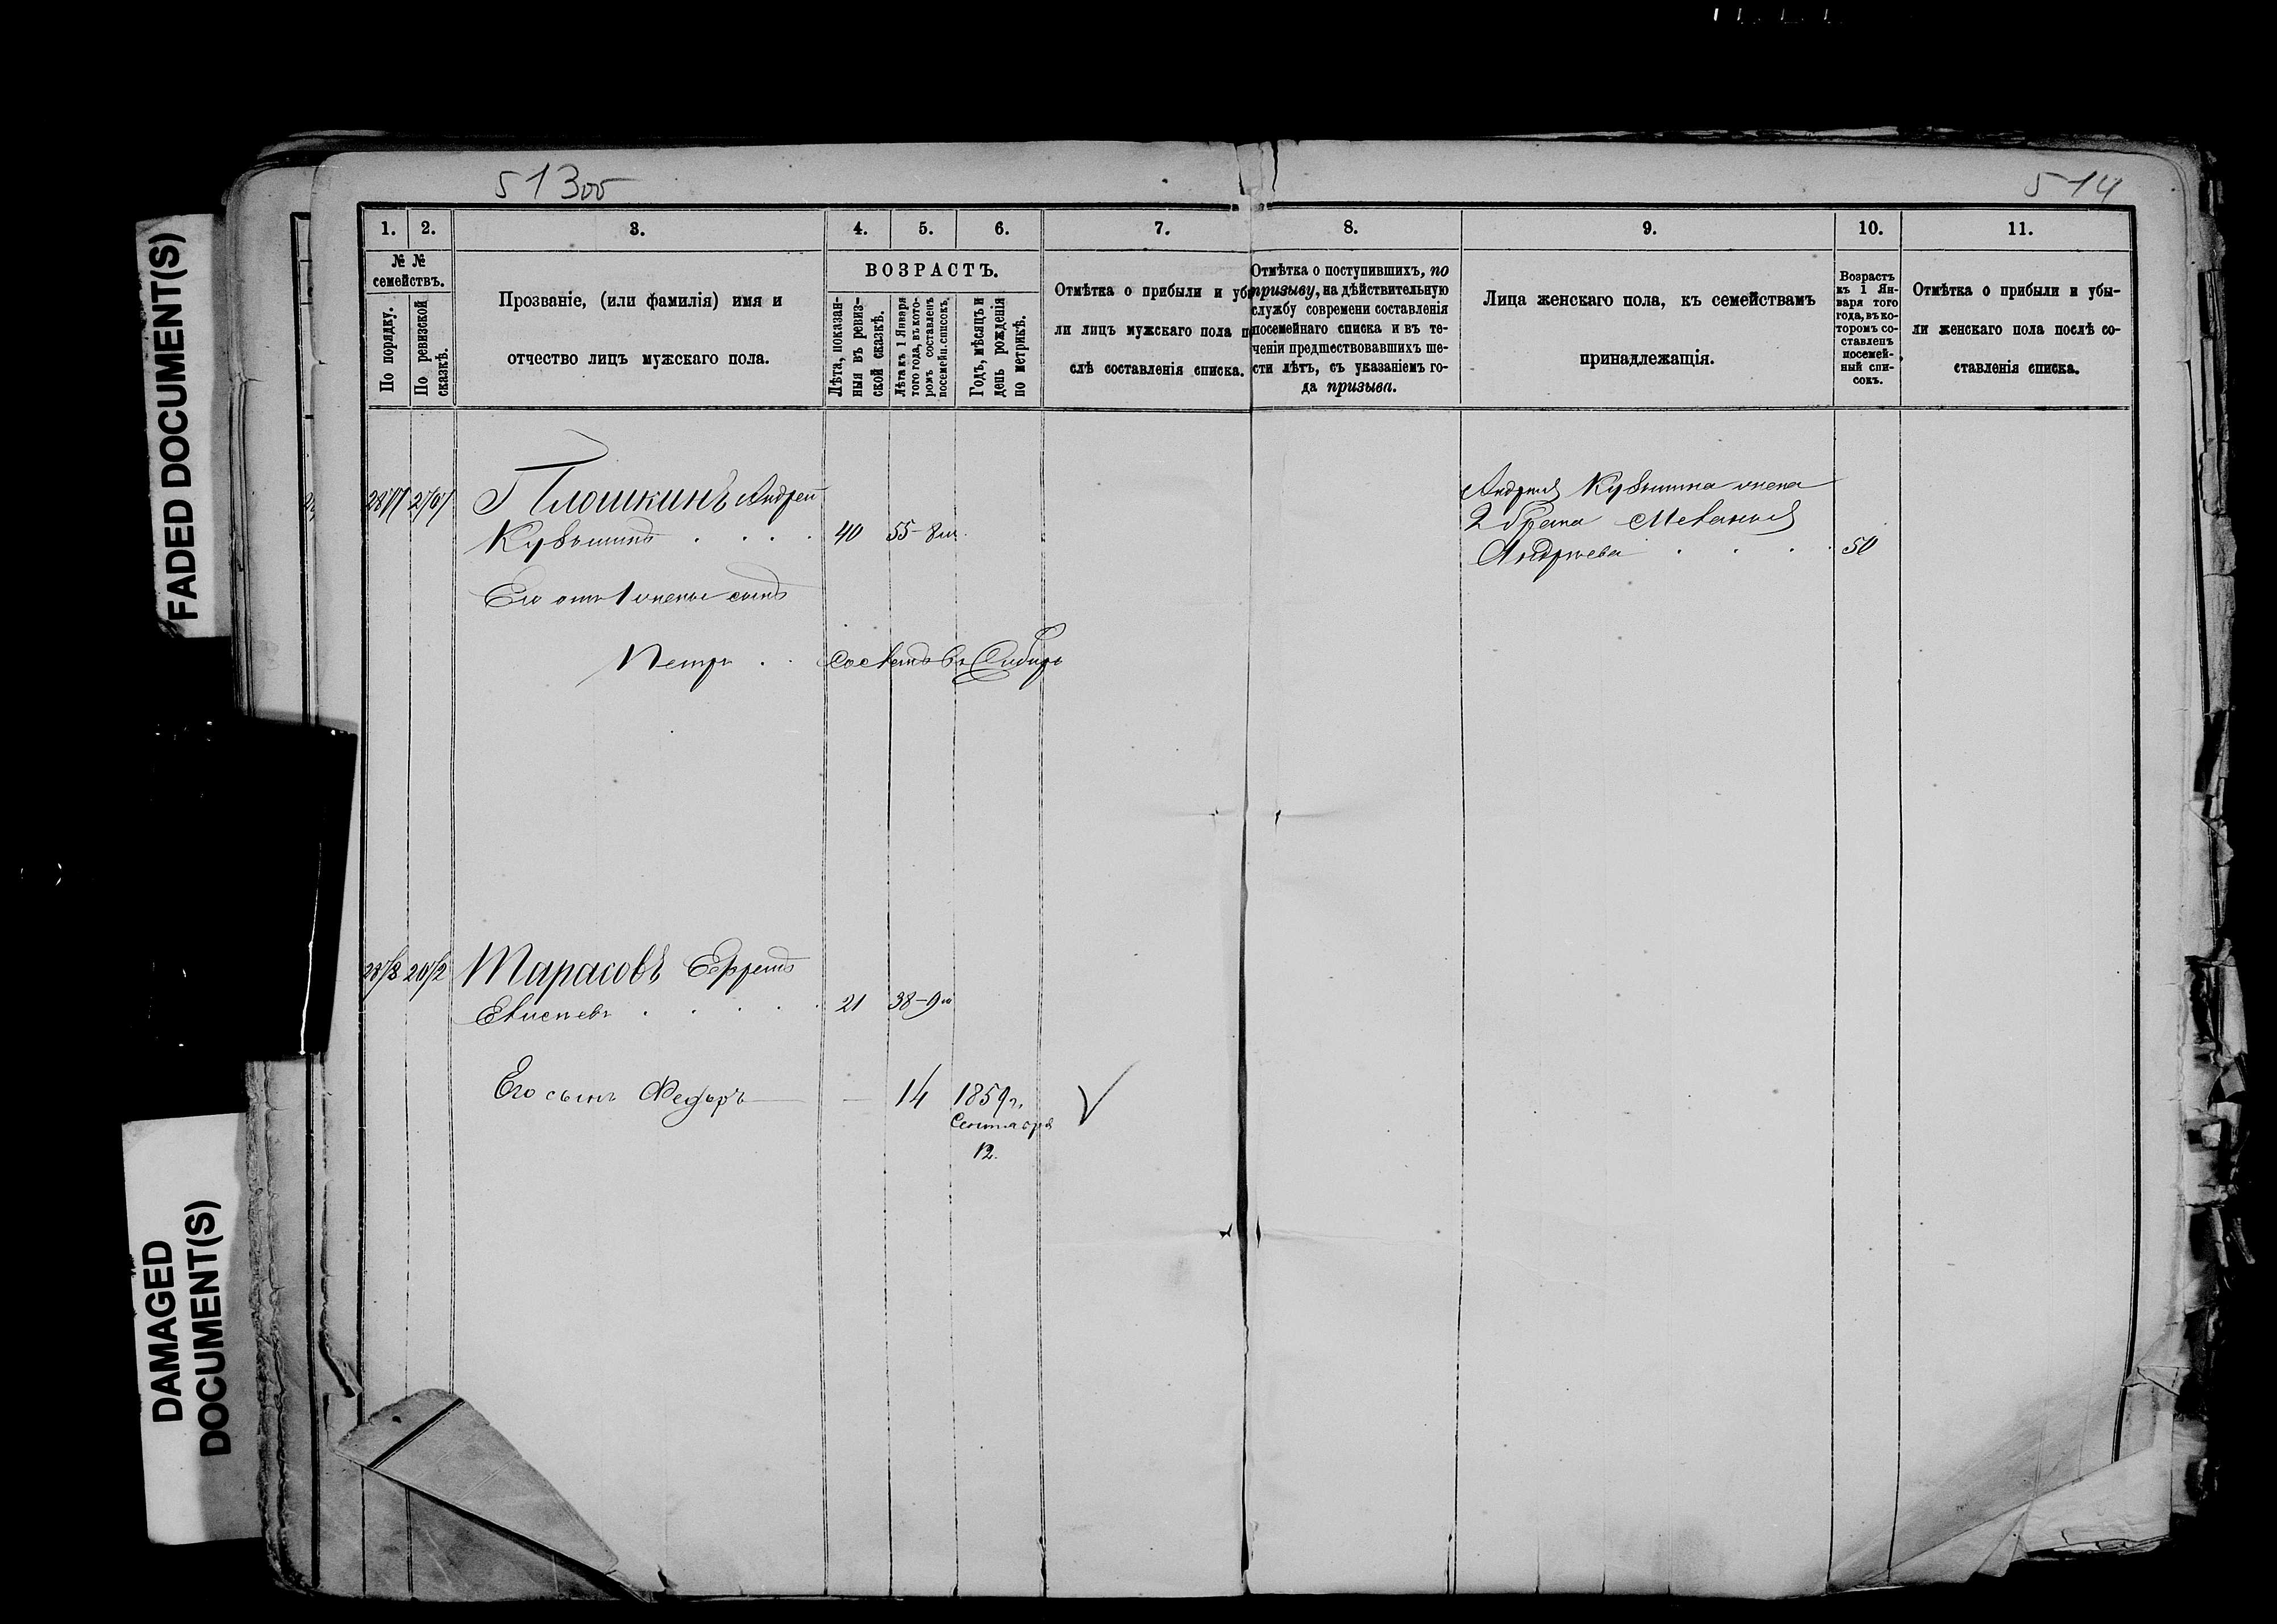 513об
514
FADED DOCUMENT(S)
DAMAGED
DOCUMENT(S)
1. 2. 3. 4. 5. 6. 7. 8. 9. 10. 11.
№ №
семействъ.
По порядку.
По ревизской
сказкѣ.
Прозваніе, (или фамилія) имя и
отчество лицъ мужскаго пола.
ВОЗРАСТЪ.
Лѣта, показан-
ныя въ ревиз-
ской сказкѣ.
Лѣта къ 1 Января
того года, въ кото-
ромъ составленъ
посемейн. списокъ.
Годъ, мѣсяцъ и
день рожденія
по метрикѣ.
Отмѣтка о прибыли и уб
ли лицъ мужскаго пола п
слѣ составленія списка.
Отмѣтка о поступившихъ, по
призыву, на дѣйствительную
службу современи составленія
посемейнаго списка и въ те-
ченіи предшествовавшихъ ше-
сти лѣтъ, съ указаніемъ го-
да призыва.
Лица женскаго пола, къ семействамъ
принадлежащія.
Возрастъ
къ 1 Ян-
варя того
года, въ ко-
торомъ со-
ставленъ
посемей-
ный спи-
сокъ.
Отмѣтка о прибыли и убы-
ли женскаго пола послѣ со-
ставленія списка.
Плошкинъ Андрей
Кузьминъ 40 55-8м.
Его отъ 1 жены сынъ
Петръ Сосланъ въ Сибирь
Андрея Кузьмина жена
2 брака Меланья
Андреева 50
Тарасовъ Ефремъ
Елисѣевъ 21 38-9м
Его сынъ Федоръ — 14 1859 г.
Сентября
12.